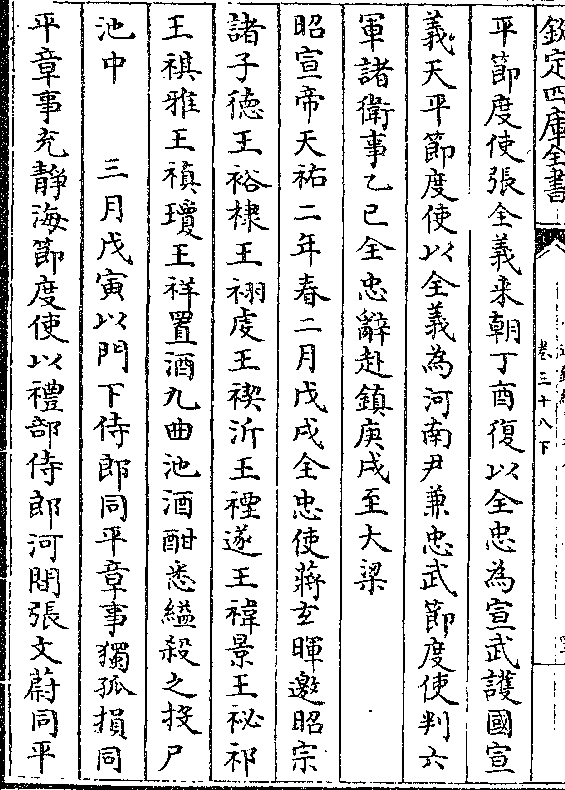 欽定四庫全書
卷三十八下
平節度使張全義来朝丁酉復以全忠為宣武護國宣
義天平節度使以全義為河南尹兼忠武節度使判六
軍諸衛事乙巳全忠辭赴鎮庚戌至大梁
昭宣帝天祐二年春二月戊戌全忠使蔣𤣥暉邀昭宗
諸子徳王裕棣王祤䖍王禊沂王禋遂王禕景王祕祁
王祺雅王禛瓊王祥置酒九曲池酒酣悉縊殺之投尸
池中　三月戊寅以門下侍郎同平章事獨孤損同
平章事充靜海節度使以禮部侍郎河間張文蔚同平